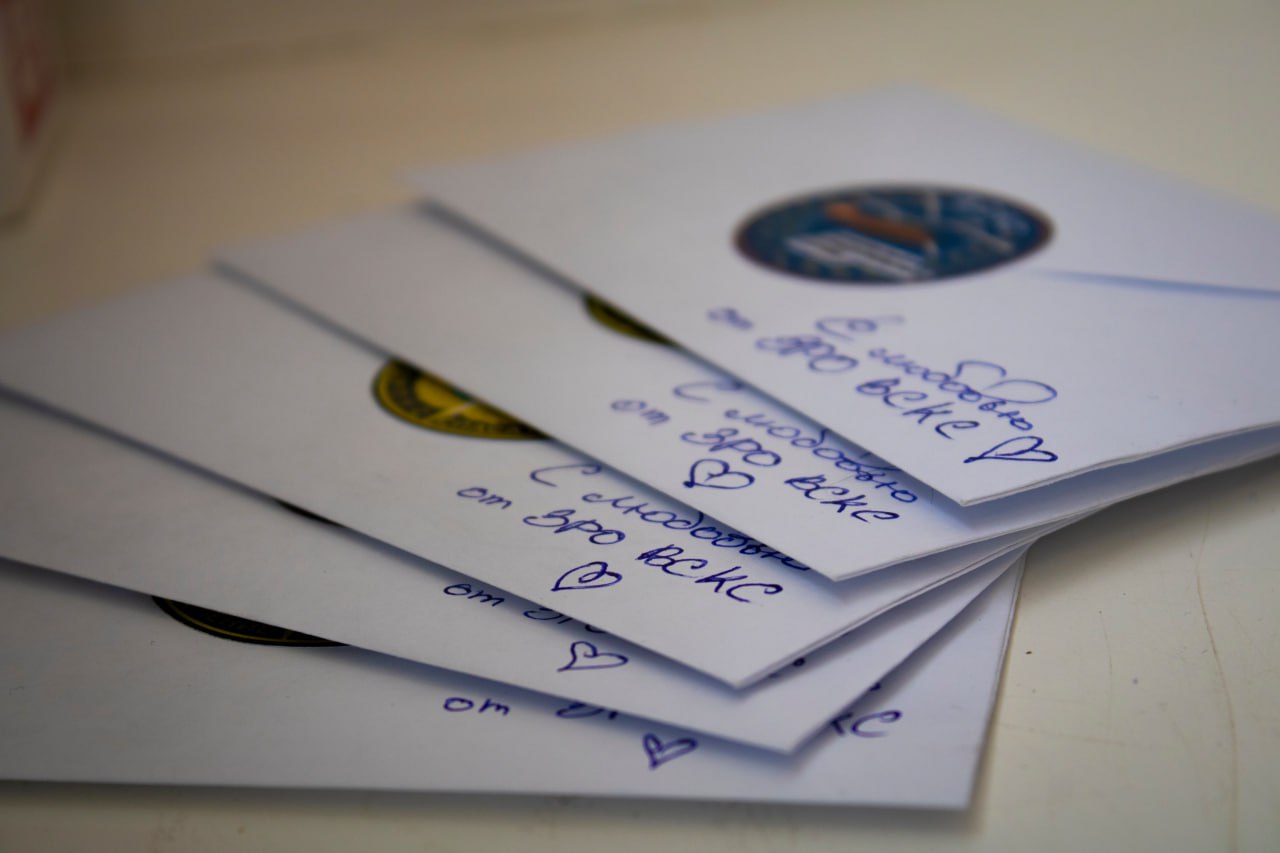 С любовью
от ЯРО ВСКС
С любовью
от ЯРО ВСКС
С любовью
от ЯРО ВСКС
от
от
КС